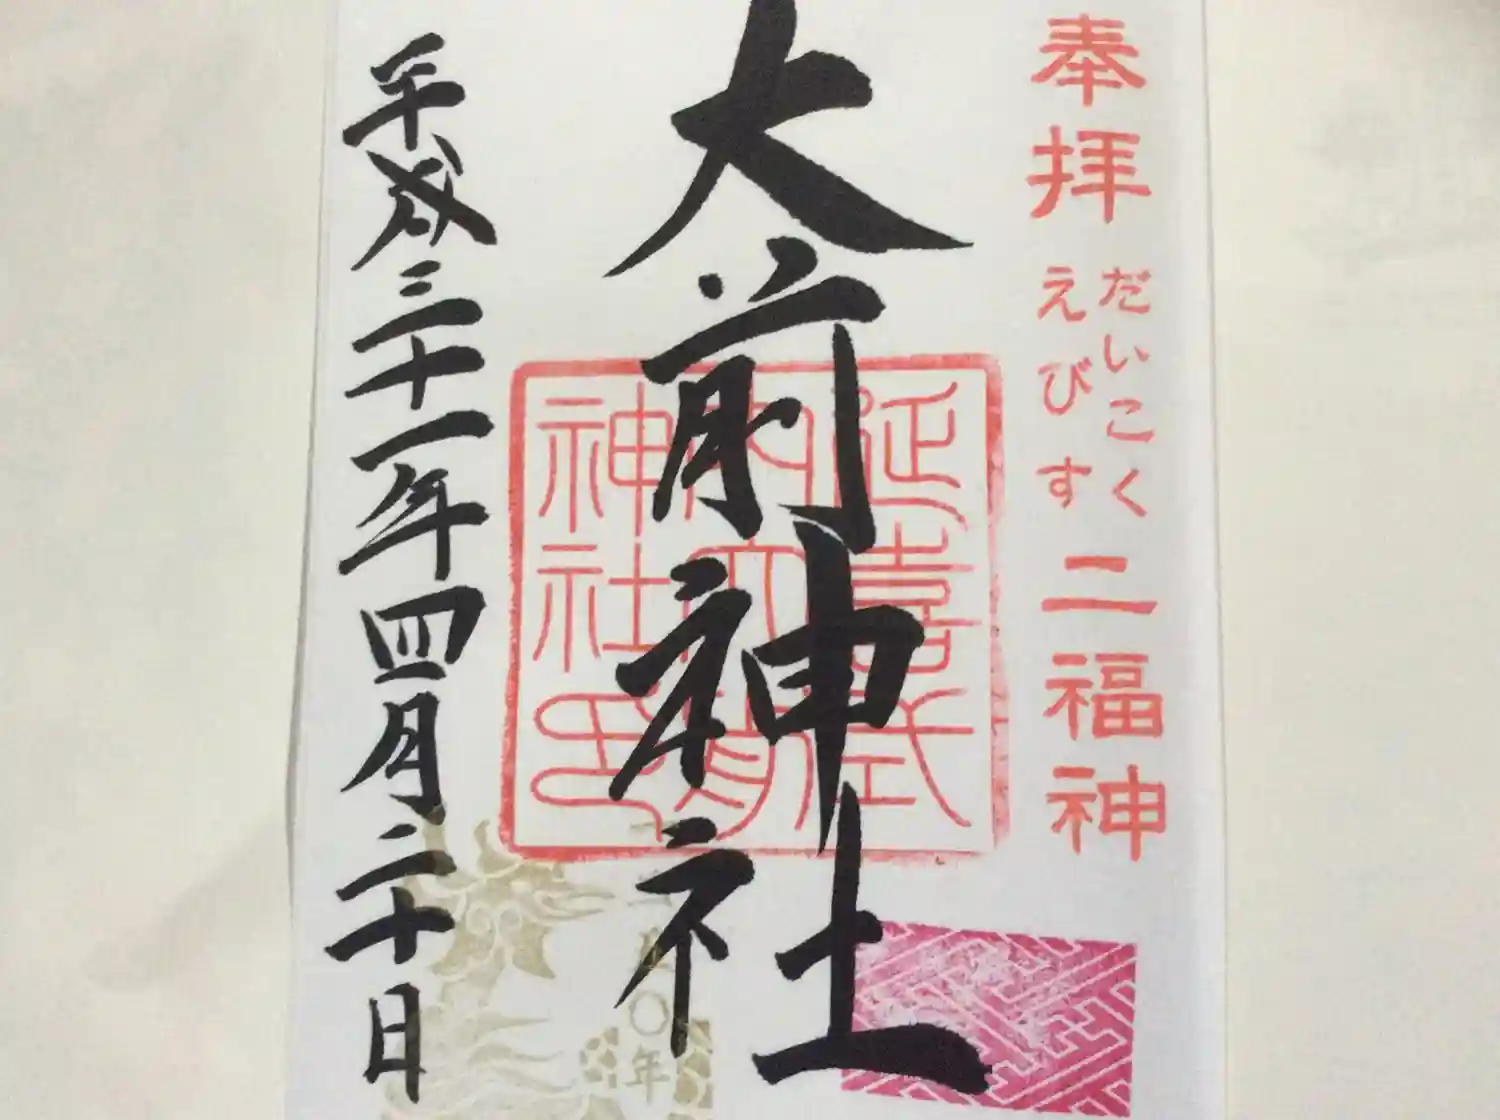 奉拝
だいこく
えびす
二福神
大前神社
延喜式
内大前
神社印
平成三十一年四月二十日
五〇年